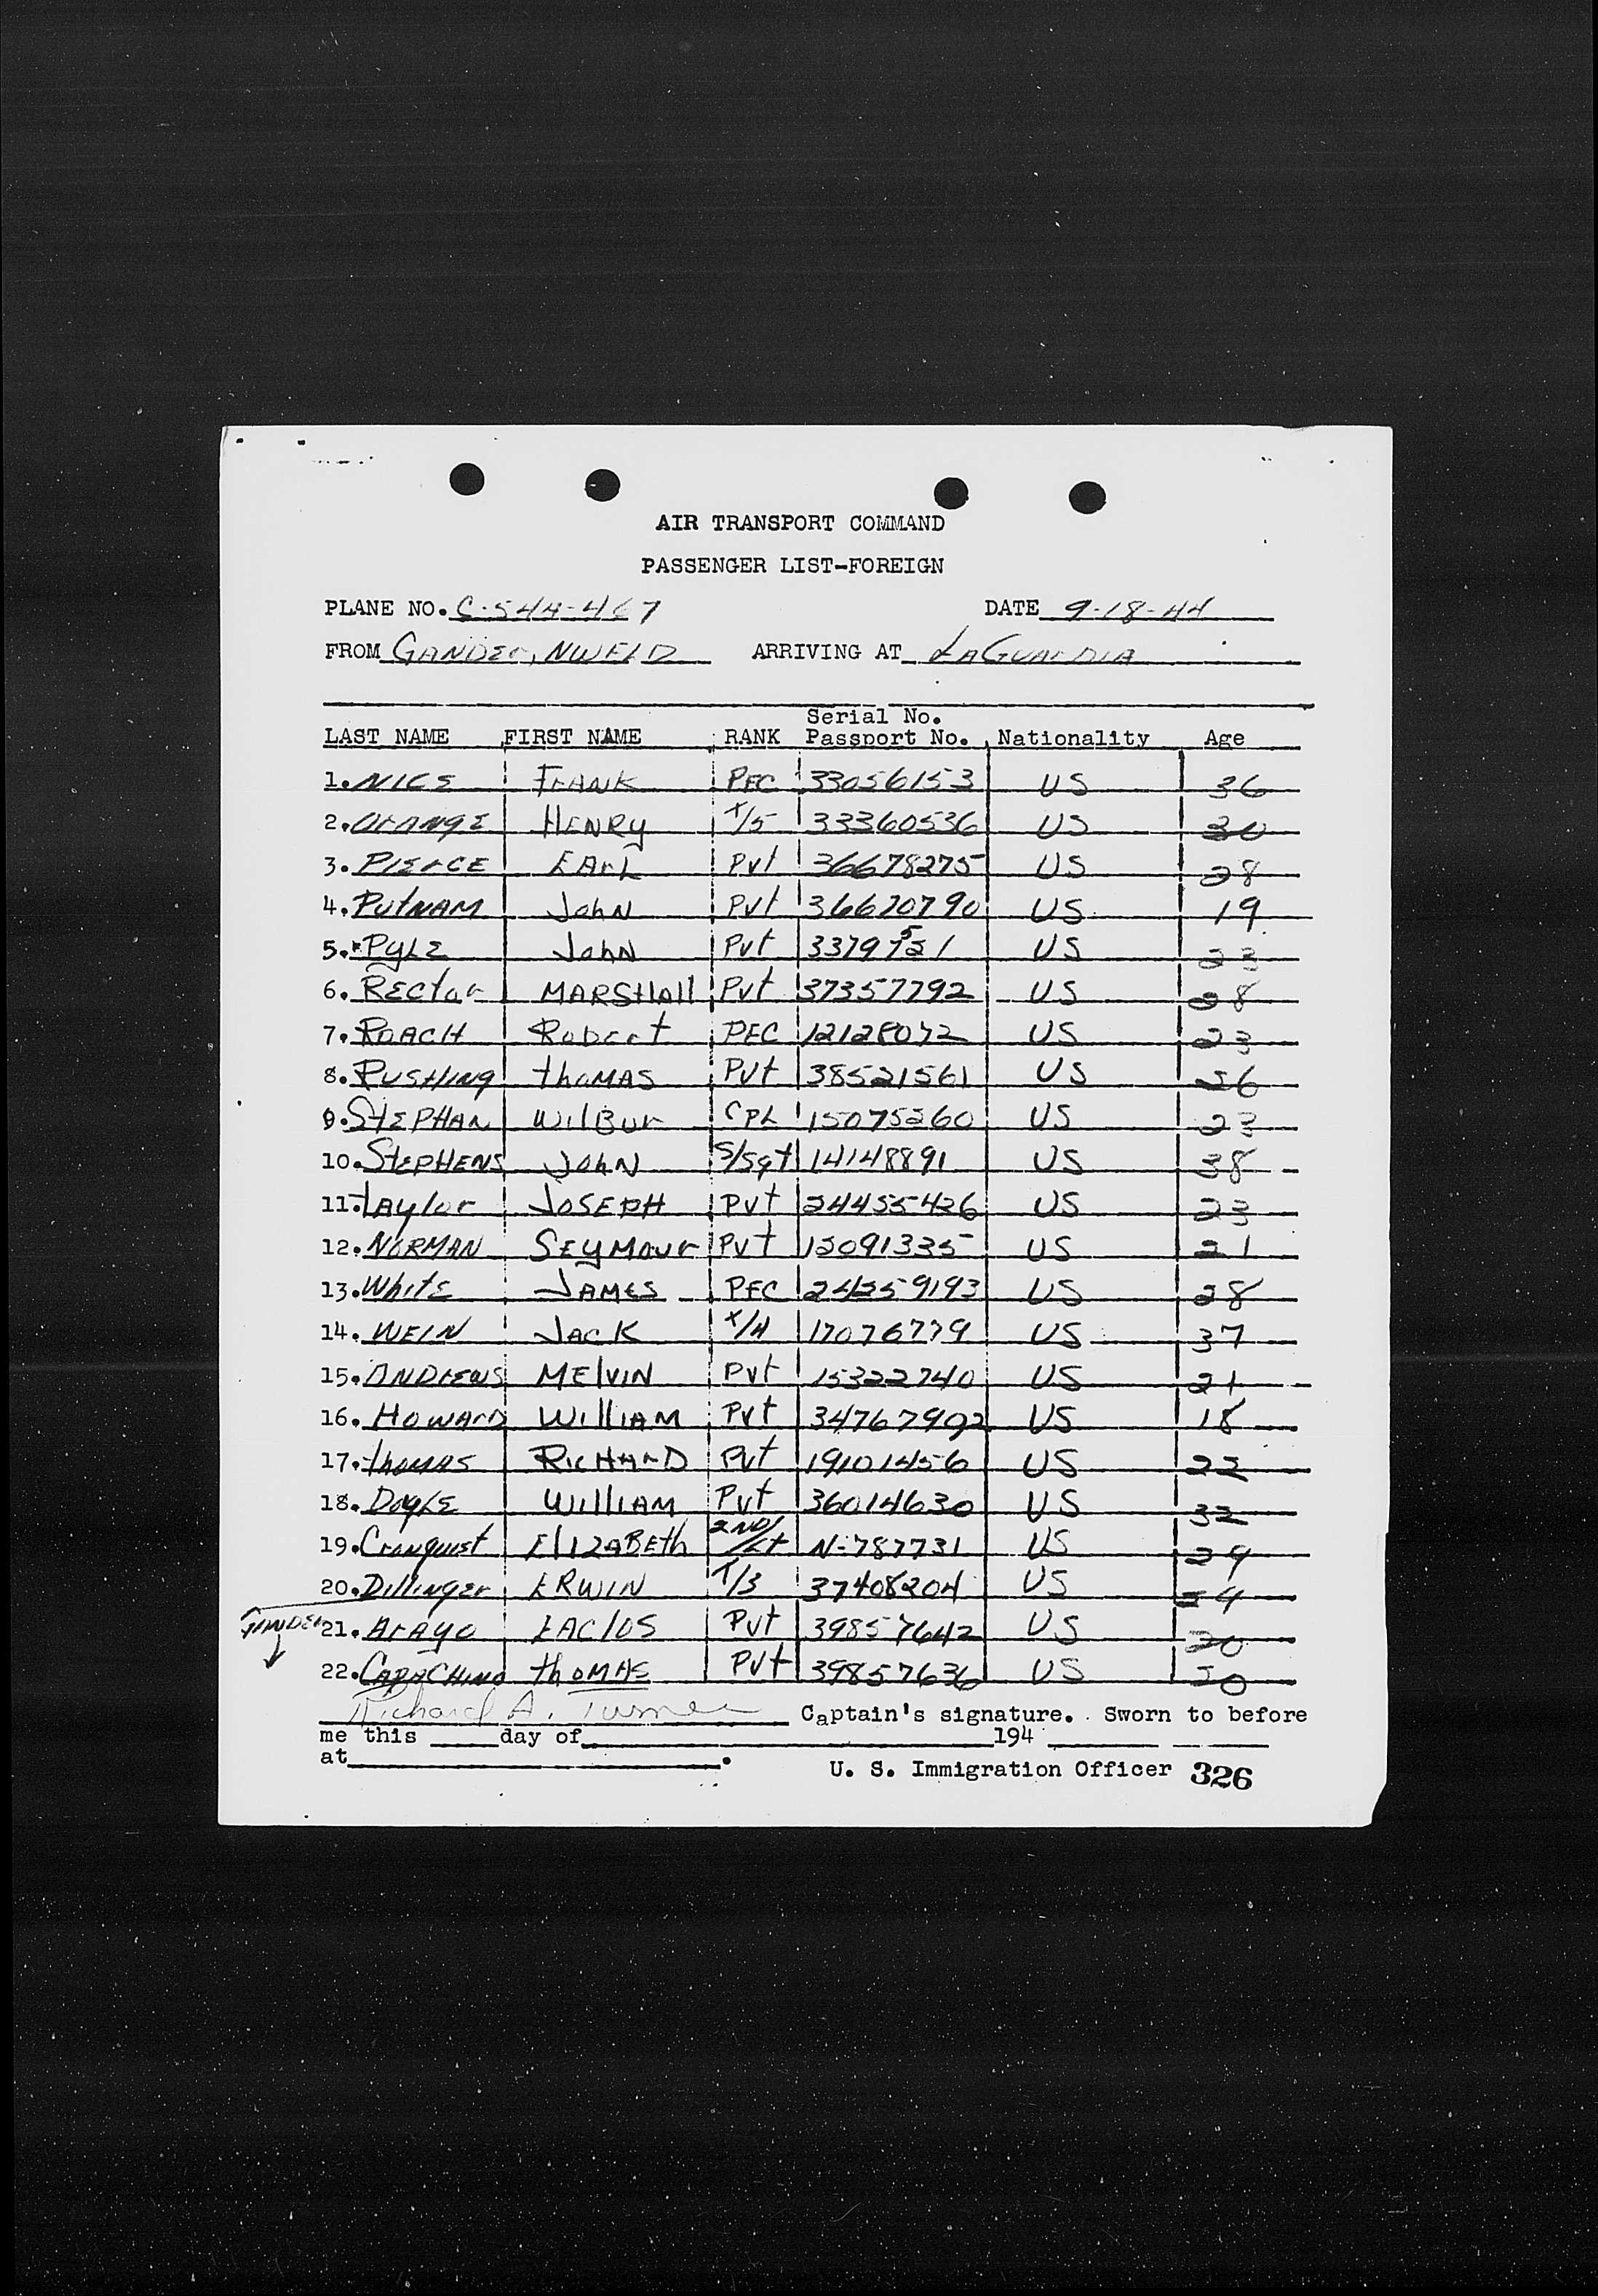 AIR TRANSPORT COMMAND
PASSENGER LIST-FOREIGN
PLANE NO. C-54A-467 DATE 9-18-44
FROM GANDER, NWFLD ARRIVING AT LAGUARDIA
Serial No.
LAST NAME FIRST NAME RANK Passport No. Nationality Age
1. NICE FRANK PFC 33056153 US 36
2. ORANGE HENRY T/5 33360536 US 30
3. PIERCE EARL Pvt 36678275 US 28
4. PUTNAM JOHN Pvt 36670790 US 19
5. PYLE JOHN Pvt US 23
6. RECTOR MARSHAll Pvt 37357792 US 28
7. ROACH RObErt PFC 12128072 US 23
8. RUSHING thOMAS Pvt 38521561 US
9. STEPHAN WilBur CPL 15075260 US 23
10. STEPHENS JOHN S/Sgt 14148891 US 38
11. tAylor JOSEPH Pvt 24455426 US 23
12. NORMAN SEyMOur Pvt 15091335 US 21
13. WhitE JAMES PFC US 28
14. WEIN JACK T/4 17076779 US 37
15. ANDrEWS MElVIN Pvt 15322740 US 21
16. HOWARD WIllIAM Pvt 34767902 US 18
17. thOMAS RICHARD Pvt 19101456 US 22
18. DOYLE WIllIAM Pvt 36014630 US 32
19. Cronquist ElIZABEth 2ND/Lt N-787731 US 29
20. Dillinger ERWIN T/3 37408204 US
GANDER 21. ArAyo Pvt 39857642 US 20
22. thOMAS Pvt 39857636 US
Richard A. Turner Captain's signature. Sworn to before
me this day of 194
at .
U. S. Immigration Officer 326